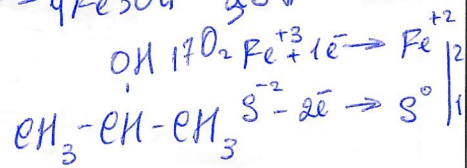 OH 17O₂ Fe⁺³ + 1ē → Fe⁺² | 2
CH₃-CH-CH₃ S⁻² - 2ē → S⁰ | 1